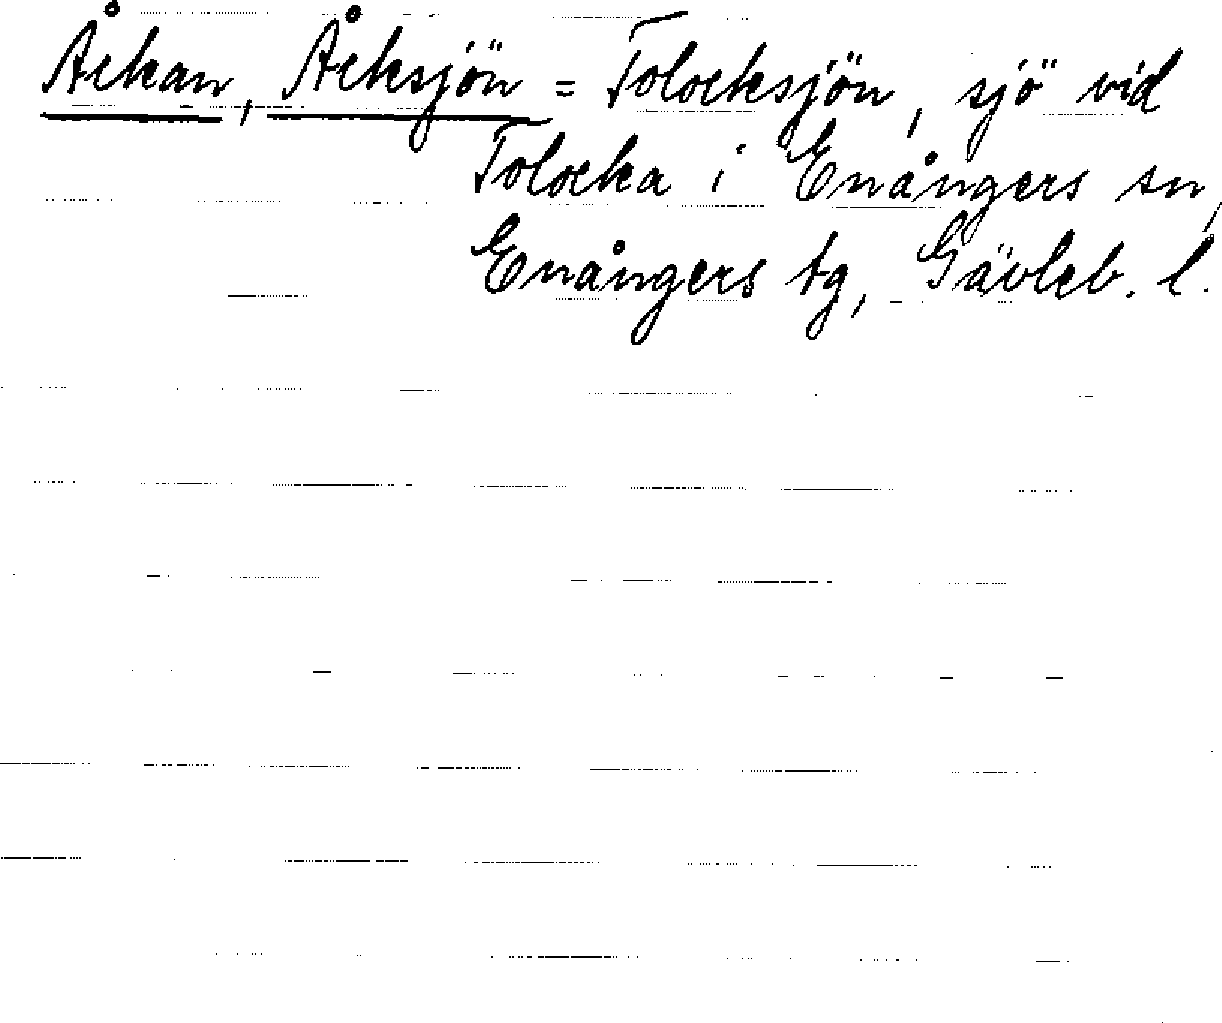 Åckan, Åcksjön = Tolocksjön, sjö vid
Tolocka i Enångers sn,
Enångers tg, Gävleb. l.